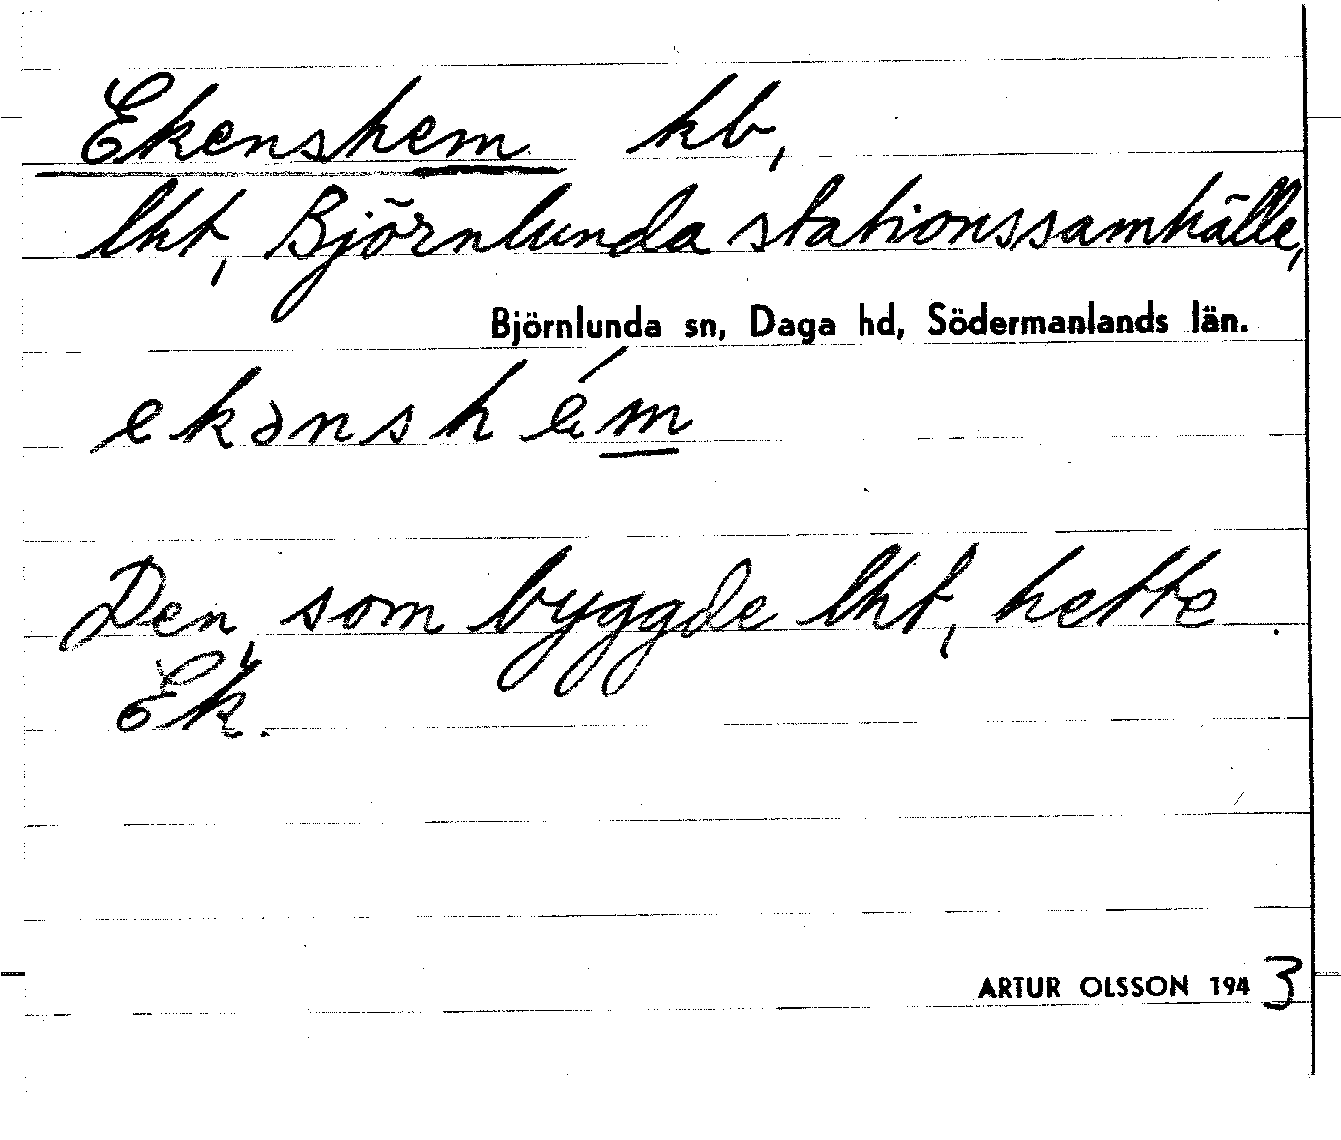 Ekenshem hb,
lht, Björnlunda stationssamhälle,
Björnlunda sn, Daga hd, Södermanlands län.
ekənshém
Den, som byggde lht, hette
Ek.
ARTUR OLSSON 1943